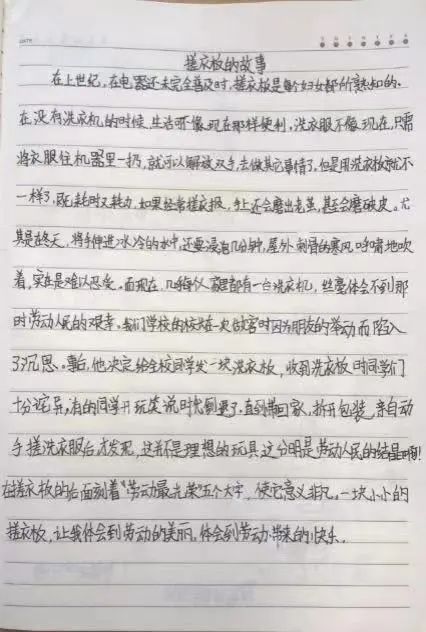 搓衣板的故事
在上世纪,在电器还未完全普及时,搓衣板是每个妇女都所熟知的。
在没有洗衣机的时候,生活不像现在那样便利,洗衣服不像现在,只需
将衣服往机器里一扔,就可以解放双手,去做其它事情了,但是用洗衣板就不
一样了,既耗时又耗力,如果经常搓衣服,手上还会磨出老茧,甚至会磨破皮。尤
其是在冬天,将手伸进冰冷的水中,还要浸泡几分钟,屋外刺骨的寒风呼啸地吹
着,实在是难以忍受。而现在,几乎每家都有一台洗衣机,丝毫体会不到那
时劳动人民的艰辛。我们学校的校长在一次做客时因为朋友的举动而陷入
了沉思。事后,他决定给全校同学发一块洗衣板,收到洗衣板时同学们
十分诧异,有的同学开玩笑说时代倒退了。直到带回家,拆开包装,亲自动
手搓洗衣服后才发现,这并不是理想的玩具这分明是劳动人民的结晶啊!
在搓衣板的后面刻着"劳动最光荣"五个大字,使它意义非凡。一块小小的
搓衣板,让我体会到劳动的美丽,体会到劳动带来的快乐。